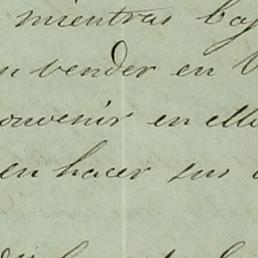 mientras baj
n vender en
ouvenir en ell
en hacer sus